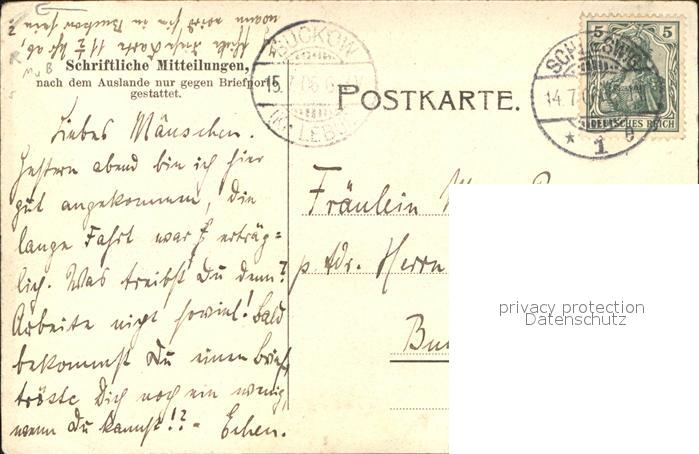 Schriftliche Mitteilungen,
nach dem Auslande nur gegen Briefporto
gestattet.
POSTKARTE.
BUCKOW
15.7.06
(KR. LEBUS)
SCHLESWIG
14.7.
* 1
5 5
DEUTSCHES REICH
Liebes Mäuschen.
Gestern abend bin ich hier
gut angekommen, die
lange Fahrt war erträg=
lich. Was treibst Du denn?
Arbeite nicht soviel! Bald
bekommst Du einen Brief,
tröste Dich noch ein wenig,
wenn Du kannst!? –
Fräulein
p. Adr. Herrn
Bu
privacy protection
Datenschutz